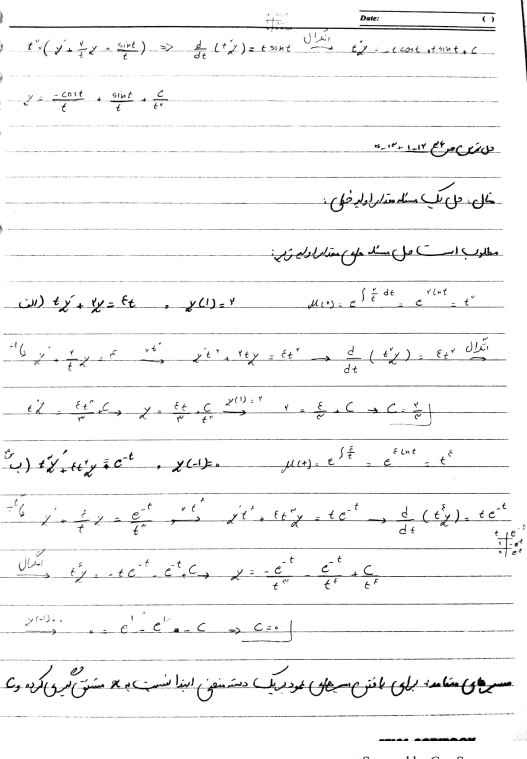 Date: ( )
t²×(y' + ۲/t y = sint/t) => d/dt (t²y) = t sint انتگرال→ t²y = -t cost + sint + c
y = -cost/t + sint/t + c/t²
مثال: حل یک مسئله مقدار اولیه خطی:
مطلوب است حل مسئله های مقدار اولیه زیر:
الف) ty' + ۲y = ۴t , y(1) = ۲ μ(t) = e^∫۲/t dt = e^۲lnt = t²
y' + ۲/t y = ۴ ×t²→ y't² + ۲ty = ۴t² → d/dt (t²y) = ۴t² انتگرال→
t²y = ۴t³/۳ + C → y = ۴t/۳ + C/t² y(1)=۲→ ۲ = ۴/۳ + C → C = ۲/۳
ب) t³y' + ۴t²y = e^-t , y(-1) = ۰ μ(t) = e^∫۴/t = e^۴lnt = t⁴
y' + ۴/t y = e^-t/t³ ×t⁴→ y't⁴ + ۴t³y = te^-t → d/dt (t⁴y) = te^-t
انتگرال→ t⁴y = -te^-t - e^-t + C → y = -e^-t/t³ - e^-t/t⁴ + C/t⁴
y(-1)=۰→ ۰ = e¹ - e¹ + C => C = ۰
مسیرهای متعامد: برای یافتن مسیرهای عمود بر یک دسته منحنی ابتدا نسبت به x مشتق گیری کرده و